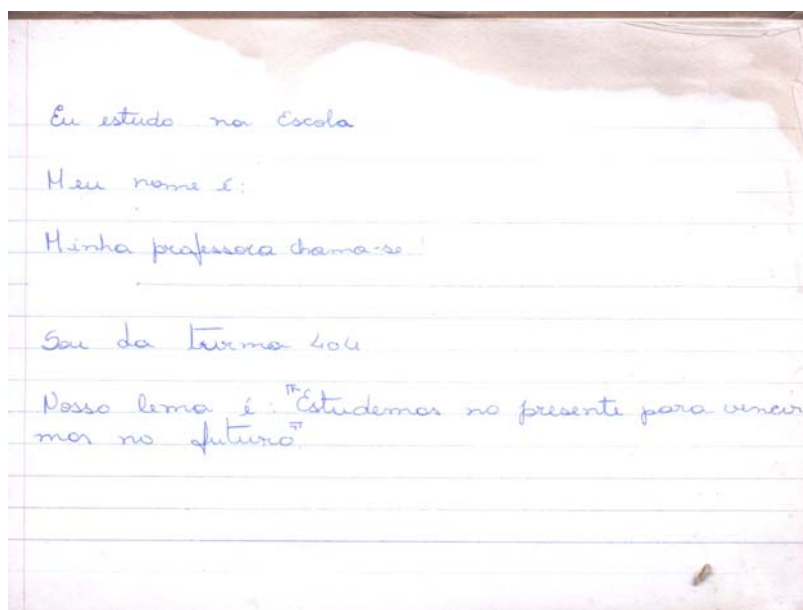 Eu estudo na Escola
Meu nome é:
Minha professora chama-se:
Sou da turma 404
Nosso lema é: "Estudemos no presente para vencer
mos no futuro"